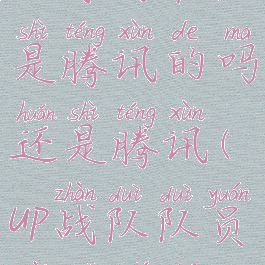 shì téng xùn de ma
是腾讯的吗
huán shì téng xùn
还是腾讯(
zhàn duì duì yuán
UP战队队员